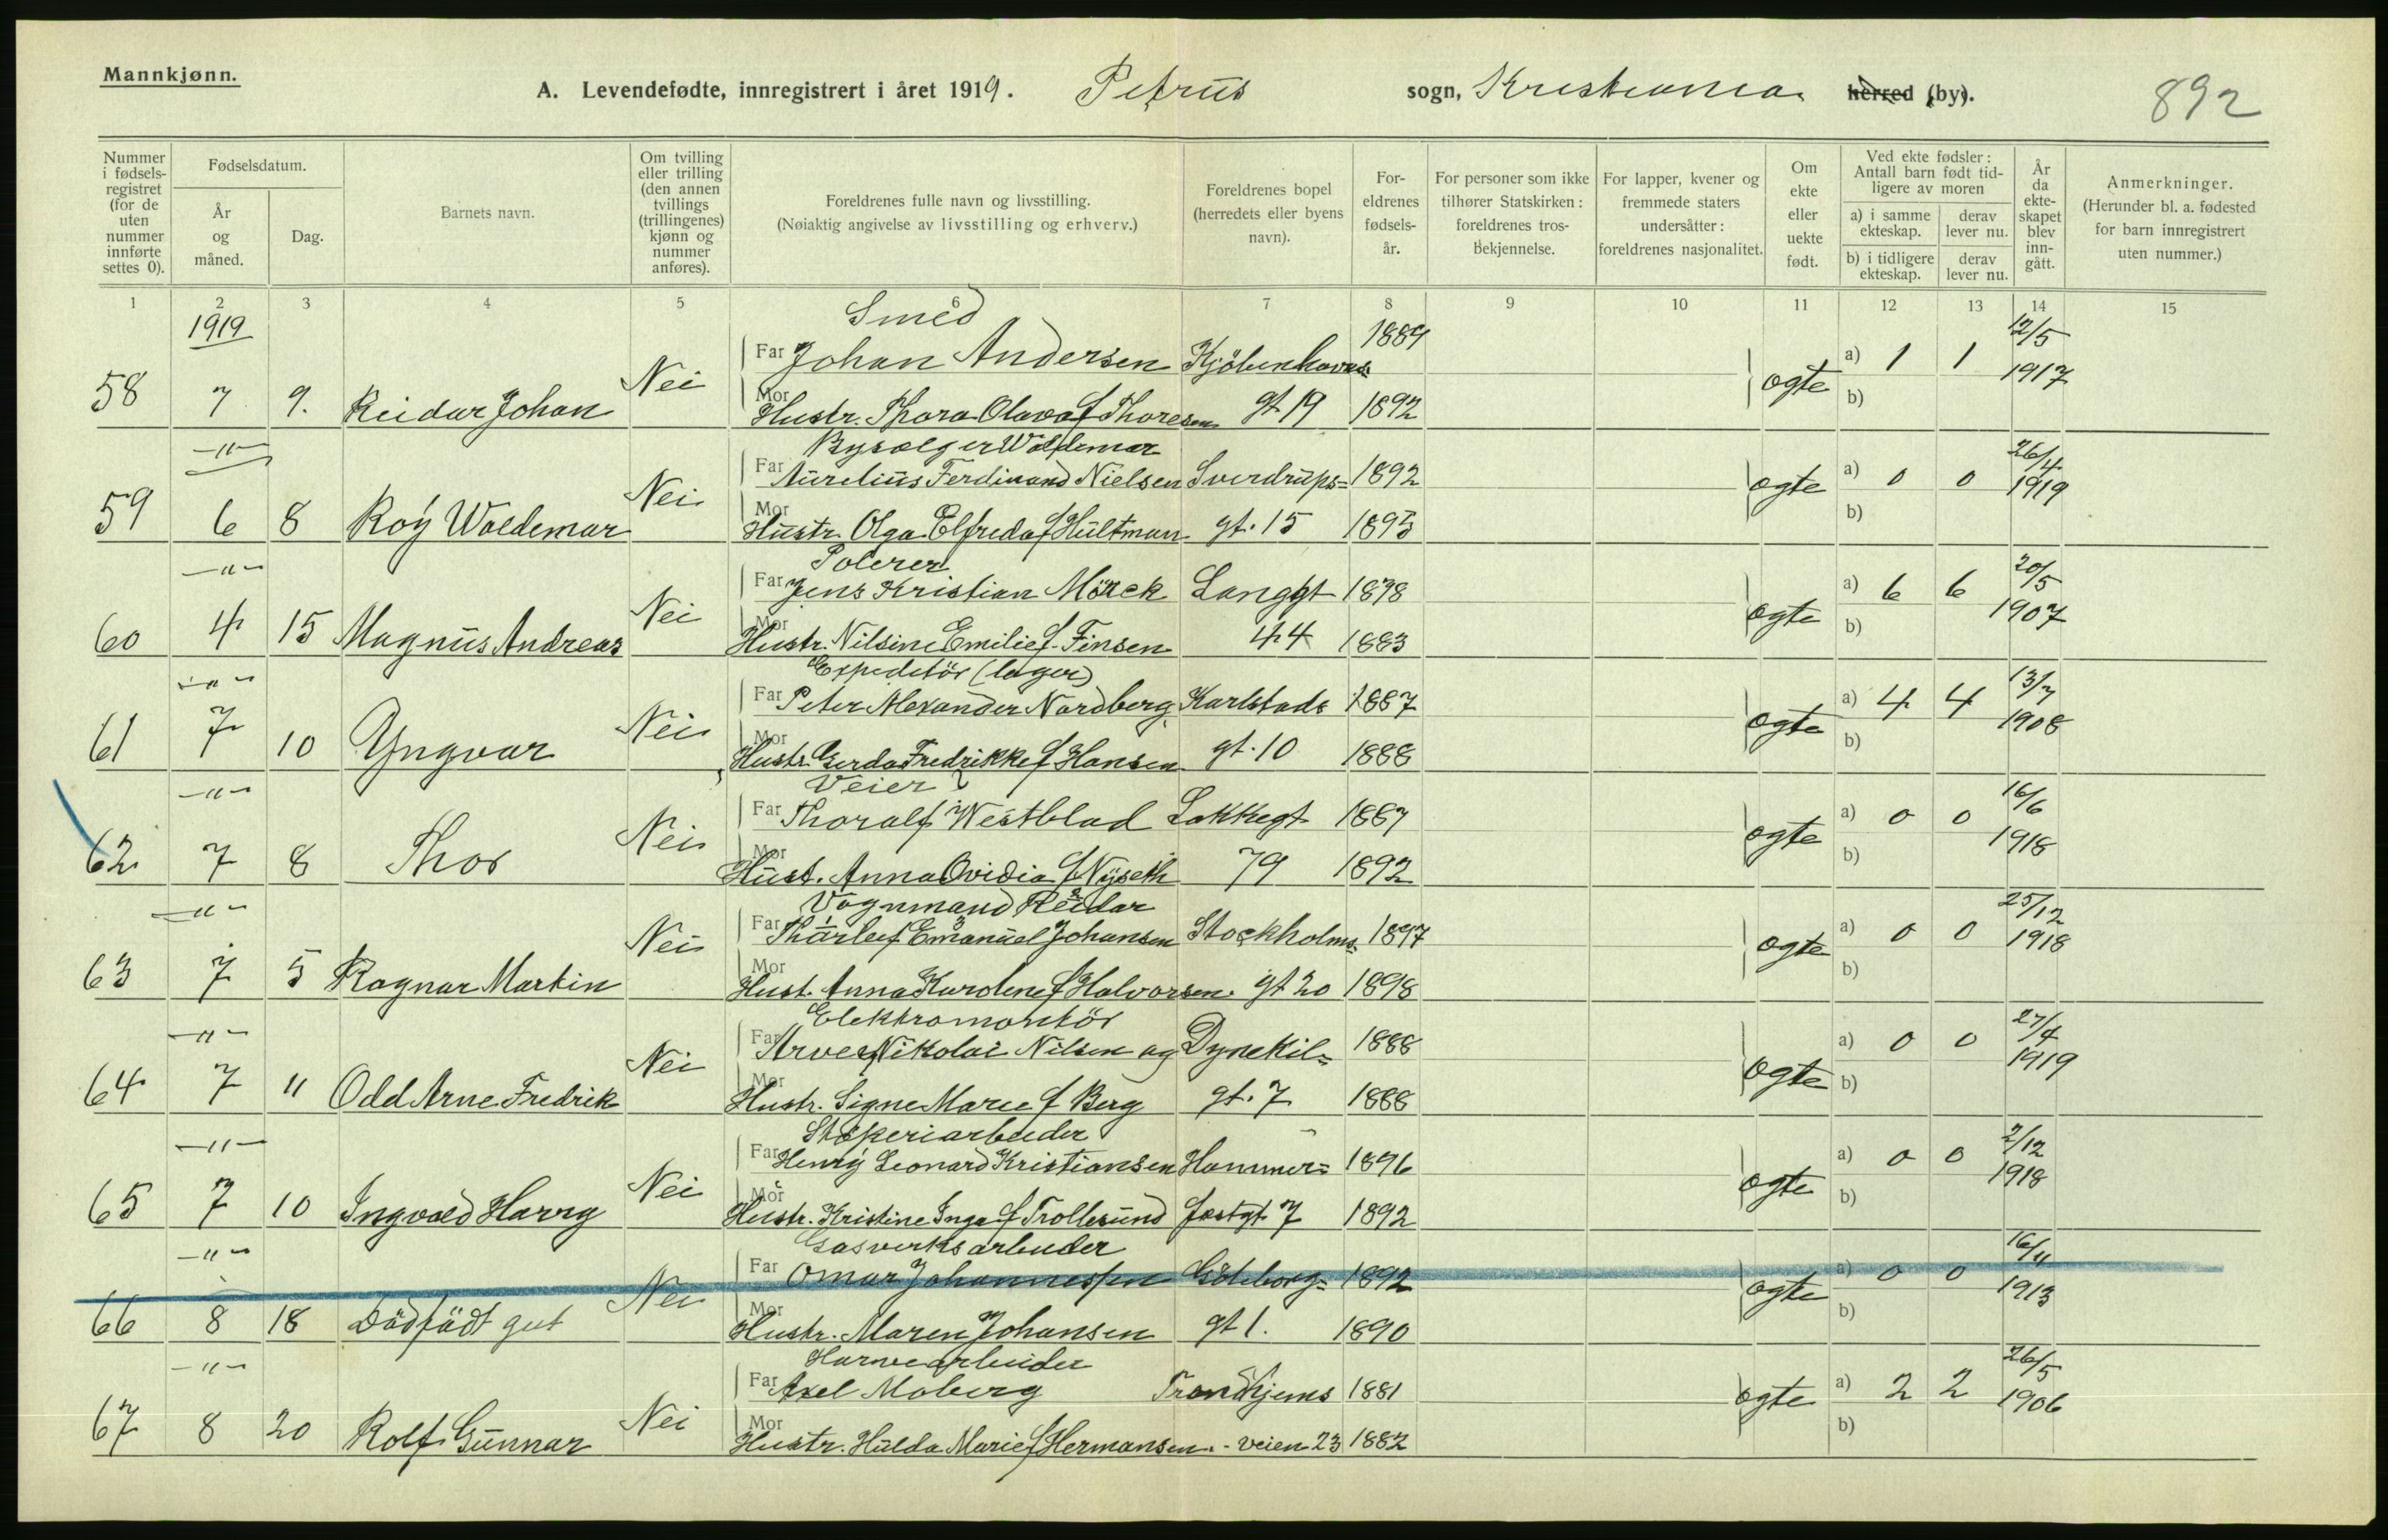 Mannkjønn.
A. Levendefødte, innregistrert i året 1919. Petrus sogn, Kristiania herred (by).
892
Nummer i fødsels-registret (for de uten nummer innførte settes 0).
Fødselsdatum.
År og måned.
Dag.
Barnets navn.
Om tvilling eller trilling (den annen tvillings (trillingenes) kjønn og nummer anføres).
Foreldrenes fulle navn og livsstilling.
(Nøiaktig angivelse av livsstilling og erhverv.)
Foreldrenes bopel (herredets eller byens navn).
For-eldrenes fødsels-år.
For personer som ikke tilhører Statskirken: foreldrenes tros-bekjennelse.
For lapper, kvener og fremmede staters undersåtter: foreldrenes nasjonalitet.
Om ekte eller uekte født.
Ved ekte fødsler: Antall barn født tid-ligere av moren
a) i samme ekteskap.
derav lever nu.
b) i tidligere ekteskap.
derav lever nu.
År da ekte-skapet blev inn-gått.
Anmerkninger.
(Herunder bl. a. fødested for barn innregistrert uten nummer.)
1 2 3 4 5 6 7 8 9 10 11 12 13 14 15
1919 Smed 12/5
Far Johan Andersen Kjöbenhavns 1889 a) 1 1 1917
58 7 9. Reidar Johan Nei Mor Hustr. Thora Olava f Thoresen gt 19 1892 ogte b)
—"— Bysælger Waldemar 26/4
Far Aurelius Ferdinand Nielsen Sverdrups- 1892 a) 0 0 1919
59 6 8 Roy Waldemar Nei Mor Hustr. Olga Elfreda f Hultman gt. 15 1895 ogte b)
—"— Polerer 20/5
Far Jens Kristian Mörck Langgt 1878 a) 6 6 1907
60 4 15 Magnus Andreas Nei Mor Hustr. Nilsine Emilie f. Finsen 44 1883 ogte b)
—"— Expeditör (lager) 13/7
Far Peter Alexander Nordberg Karlstads 1887 a) 4 4 1908
61 7 10 Yngvar Nei Mor Hustr. Gerda Fredrikke f Hansen gt. 10 1888 ogte b)
—"— Veier 16/6
Far Thoralf Westblad Lakkegt 1887 a) 0 0 1918
62 7 8 Thor Nei Mor Hust. Anna Ovidia f Nyseth 79 1892 ogte b)
—"— Vognmand Reidar 25/12
Far Thorleif Emanuel Johansen Stockholms 1897 a) 0 0 1918
63 7 5 Ragnar Martin Nei Mor Hust. Anna Karoline f Halvorsen. gt 20 1898 ogte b)
—"— Elektromontör 27/4
Far Arve Nikolai Nilsen og Dynekil- 1888 a) 0 0 1919
64 7 11 Odd Arne Fredrik Nei Mor Hustr. Signe Marie f Berg gt. 7 1888 ogte b)
—"— Stöperiarbeider 2/12
Far Henry Leonard Kristiansen Hammer- 1896 a) 0 0 1918
65 7 10 Ingvald Harry Nei Mor Hustr. Kristine Inga f Trollesund fæstgt 7 1892 ogte b)
—"— Gasverksarbeider 16/11
Far Omar Johannessen Göteborg- 1892 a) 0 0 1913
66 8 18 Dödfödt gut Nei Mor Hustr. Maren Johansen gt 1. 1890 ogte b)
—"— Havnearbeider 26/5
Far Axel Moberg Trondhjems 1881 a) 2 2 1906
67 8 20 Rolf Gunnar Nei Mor Hustr. Hulda Marie f Hermansen. - veien 23 1882 ogte b)